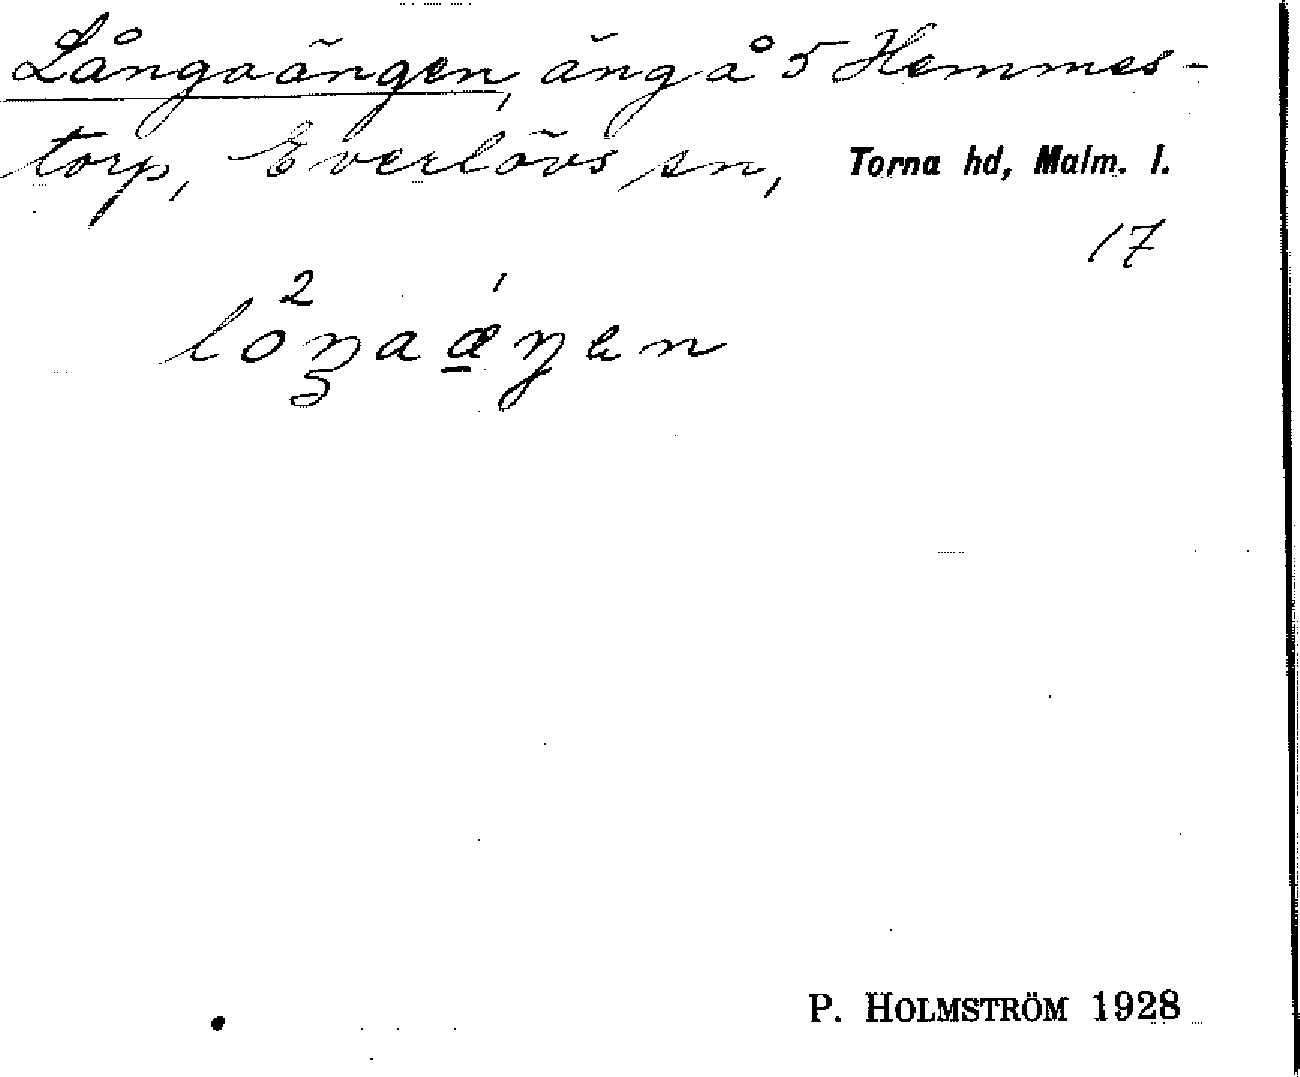 Långaängen, äng å 5 Hemmes-
torp, Everlövs sn, Torna hd, Malm. l.
17
2 1
loŋaæŋen
P. HOLMSTRÖM 1928